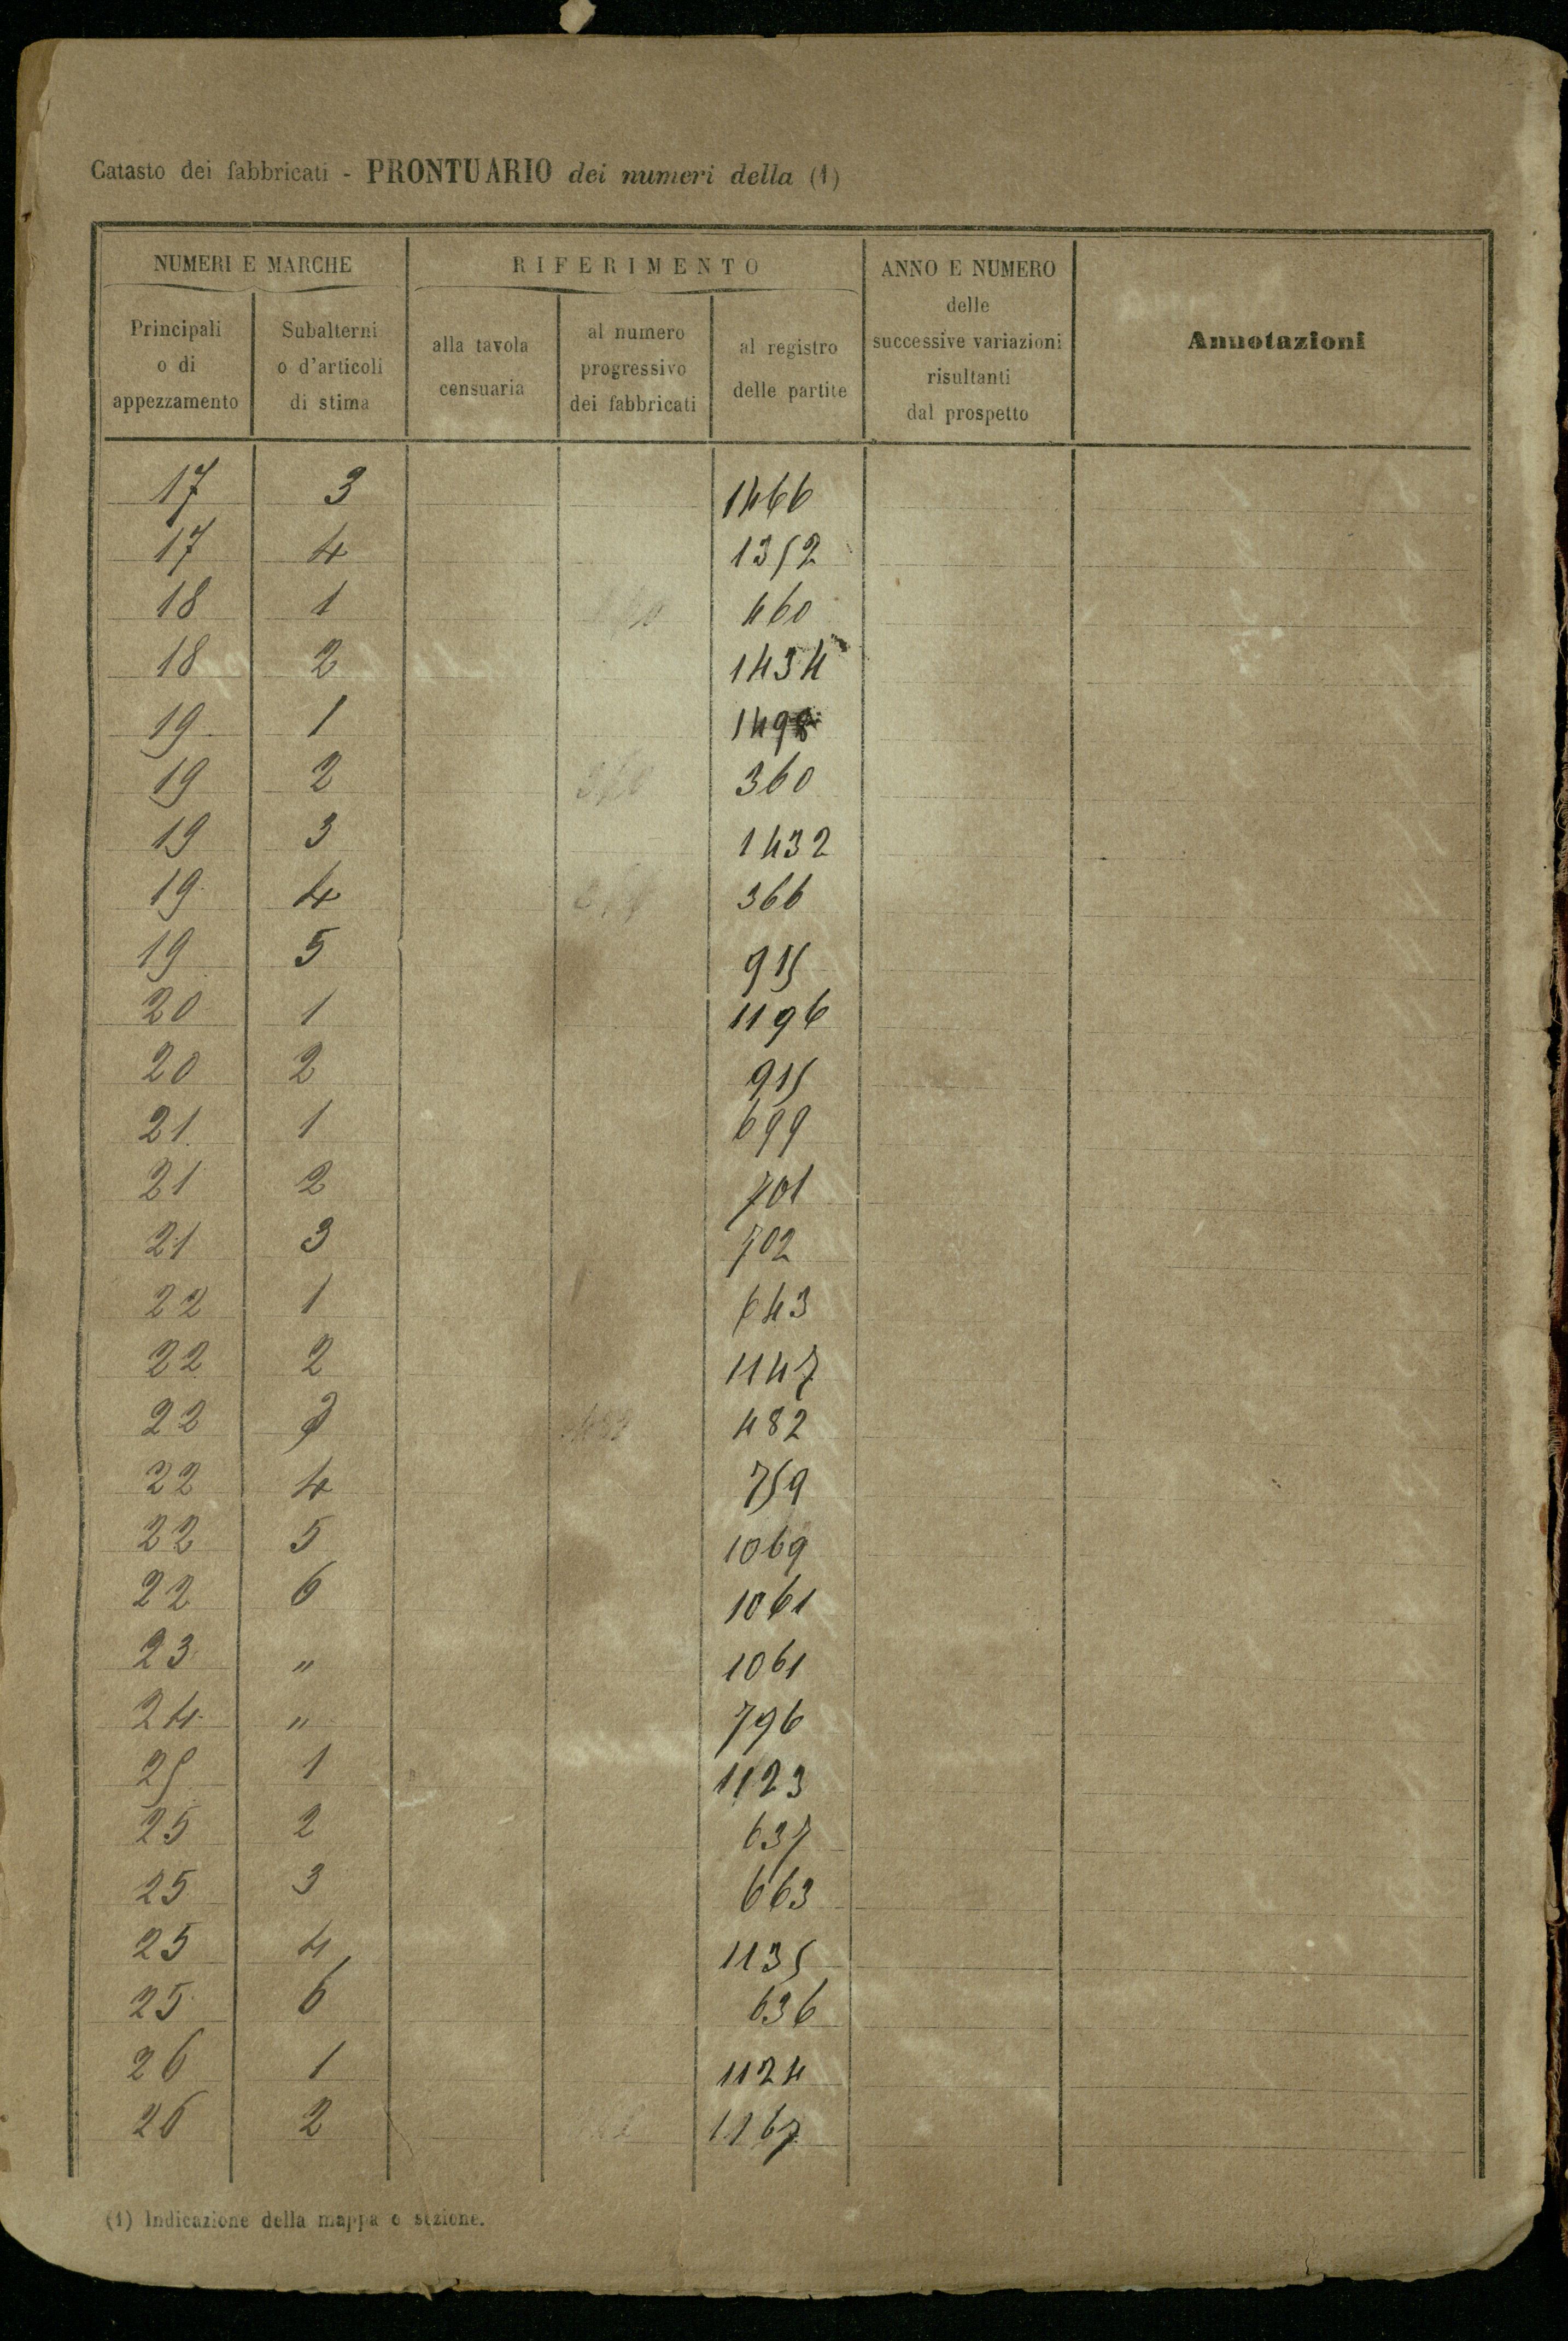 Catasto dei fabbricati - PRONTUARIO dei numeri della (1)
NUMERI E MARCHE
RIFERIMENTO
ANNO E NUMERO
delle
successive variazioni
risultanti
dal prospetto
Annotazioni
Principali
o di
appezzamento
Subalterni
o d'articoli
di stima
alla tavola
censuaria
al numero
progressivo
dei fabbricati
al registro
delle partite
17 3 1466
17 4 1352
18 1 460
18 2 1434
19 1
19 2 360
19 3 1432
19 4 366
19 5 915
20 1 1196
20 2 915
21 1 699
21 2 701
21 3 702
22 1 643
22 2 1147
22 3 482
22 4 759
22 5 1069
22 6 1061
23 " 1061
24 " 796
25 1 1123
25 2 637
25 3 663
25 4 1135
25 6 636
26 1 1124
26 2 1167
(1) Indicazione della mappa o sezione.